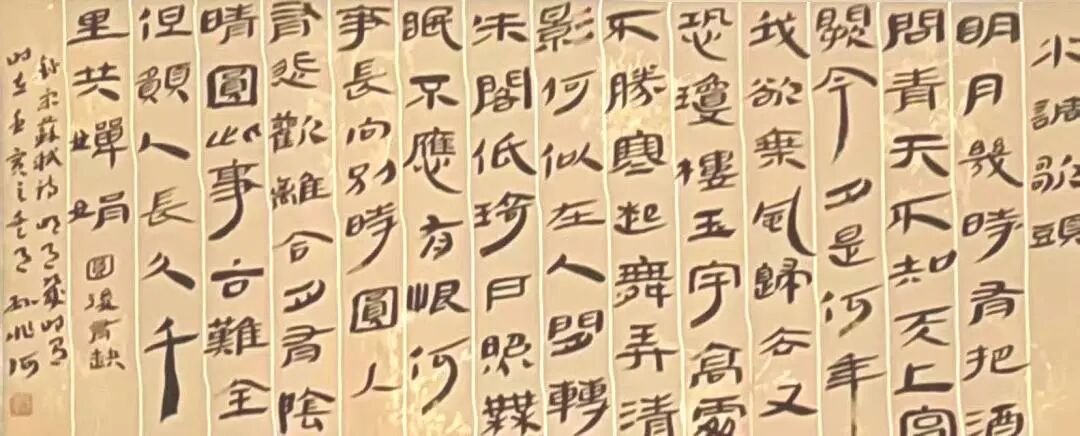 水調歌頭
明月幾時有把酒
問青天不知天上宮
闕今夕是何年
我欲乘風歸去又
恐瓊樓玉宇高處
不勝寒起舞弄清
影何似在人間轉
朱閣低琦戶照無
眠不應有恨何
事長向別時圓人
有悲歡離合月有陰
晴圓此事古難全
但願人長久千
里共嬋娟
宋蘇軾詩明月幾時有